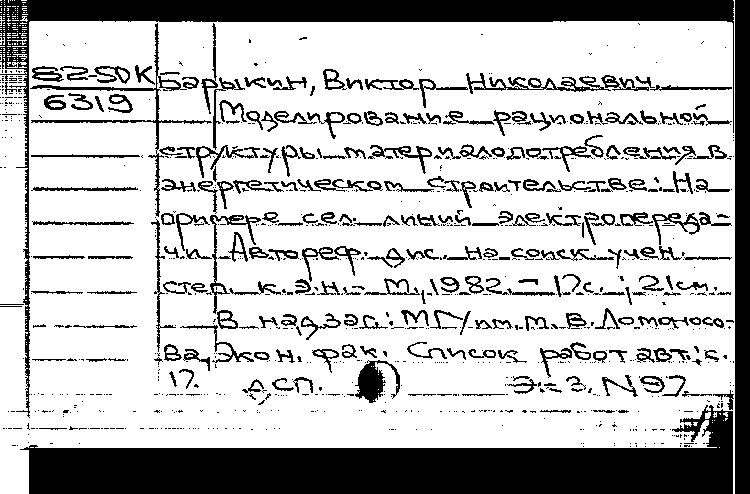 82-5DK
6319
Барыкин, Виктор Николаевич.
Моделирование рациональной
структуры материалопотребления в
энергетическом строительстве: На
примере сел. линий электропереда-
чи. Автореф. дис. на соиск. учен.
степ. к.э.н. - М., 1982. - 17с.; 21см.
В надзаг.: МГУ им. М. В. Ломоносо-
ва, Экон. фак. Список работ авт.: с.
17. ДСП. Э.-3. N 97.